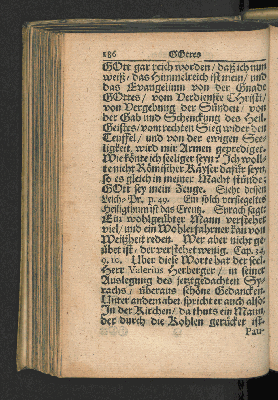 186 GOttes
GOtt gar reich worden/ daß ich nun
weiß/ das Himmelreich ist mein/ und
das Evangelium von der Gnade
GOttes/ vom Verdienste Christi/
von Vergebung der Sünden/ von
der Gab und Schenckung des Heil.
Geistes/ vom rechten Sieg wider den
Teuffel/ und von der ewigen See-
ligkeit, wird mir Armen geprediget.
Wie könte ich seeliger seyn? Ich woll-
te nicht Römischer Käyser dafür seyn,
so es gleich in meiner Macht stünde;
GOtt sey mein Zeuge. Siehe dessen
Leich-Pr. p. 49. Ein solch versiegeltes
Heiligthum ist das Creutz. Syrach sagt:
Ein wohlgeübter Mann verstehet
viel/ und ein Wohlerfahrner kan von
Weißheit reden. Wer aber nicht ge-
übet ist/ der verstehet wenig. Cap. 34,
9. 10. Uber diese Worte hat der seel.
Herr Valerius Herberger/ in seiner
Auslegung des jetztgedachten Sy-
rachs/ überaus schöne Gedancken.
Unter andern aber spricht er auch also:
In der Kirchen/ da thuts ein Mann,
der durch die Kohlen gerücket ist.
Pau-